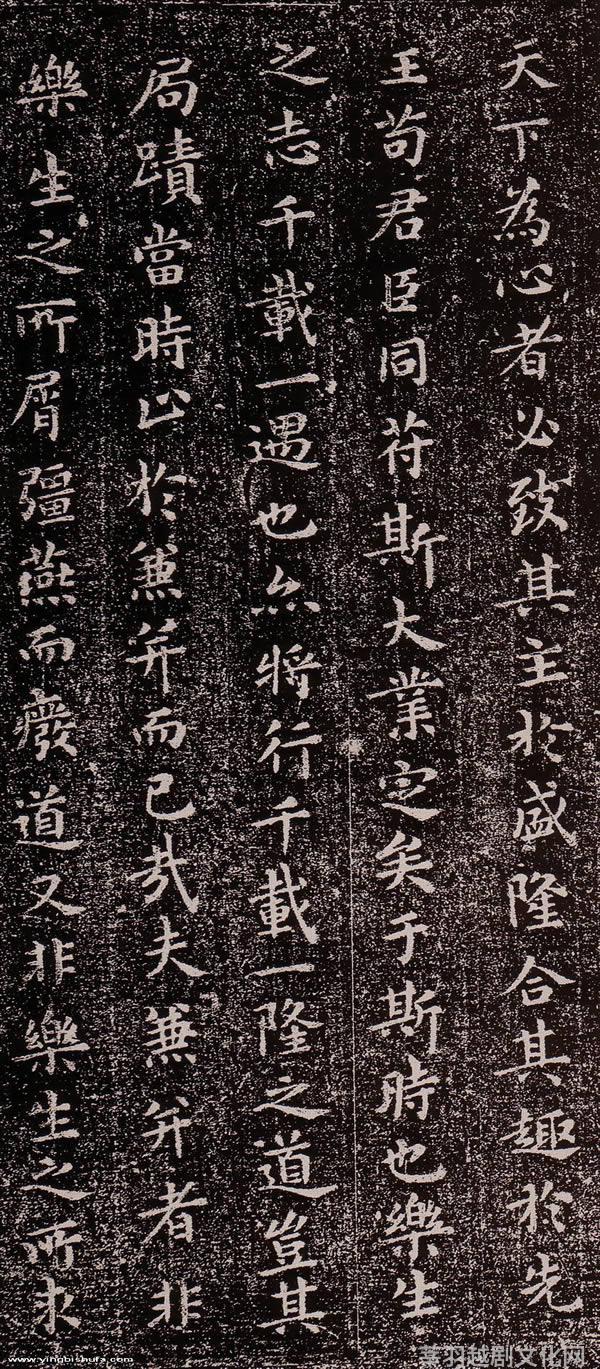 天下為心者必致其主於盛隆合其趣於先
王苟君臣同苻斯大業定矣于斯時也樂生
之志千載一遇也亦將行千載一隆之道豈其
局蹟當時止於兼并而已哉夫兼并者非
樂生之所屑彊燕而廢道又非樂生之所求
www.yingbishufa.com
羽越剧文化网